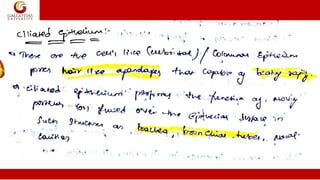 GALGOTIAS
UNIVERSITY
Ciliated Epithelium:-
These are the cells like (cuboidal) / Columnar Epithelium
hair like apendages that capable of beating
ciliated epithelium the function of moving
fluid over the epithelial surface in
Such structures as trachea, bronchial tubes, nasal
cavities